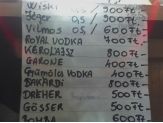 WISKI 0,5/ 900 FT.
Jéger 0,5/ 900 FT.
Vilmos 0,5/ 600 FT.
ROYAL VODKA 700FT.
KEROLAJSZ 800FT.
GARONE 400FT.
Grámóla VODKA 400FT.
BAKARDI 800FT.
DREHER 500FT.
GÖSSER 500FT.
BOMBA 600FT